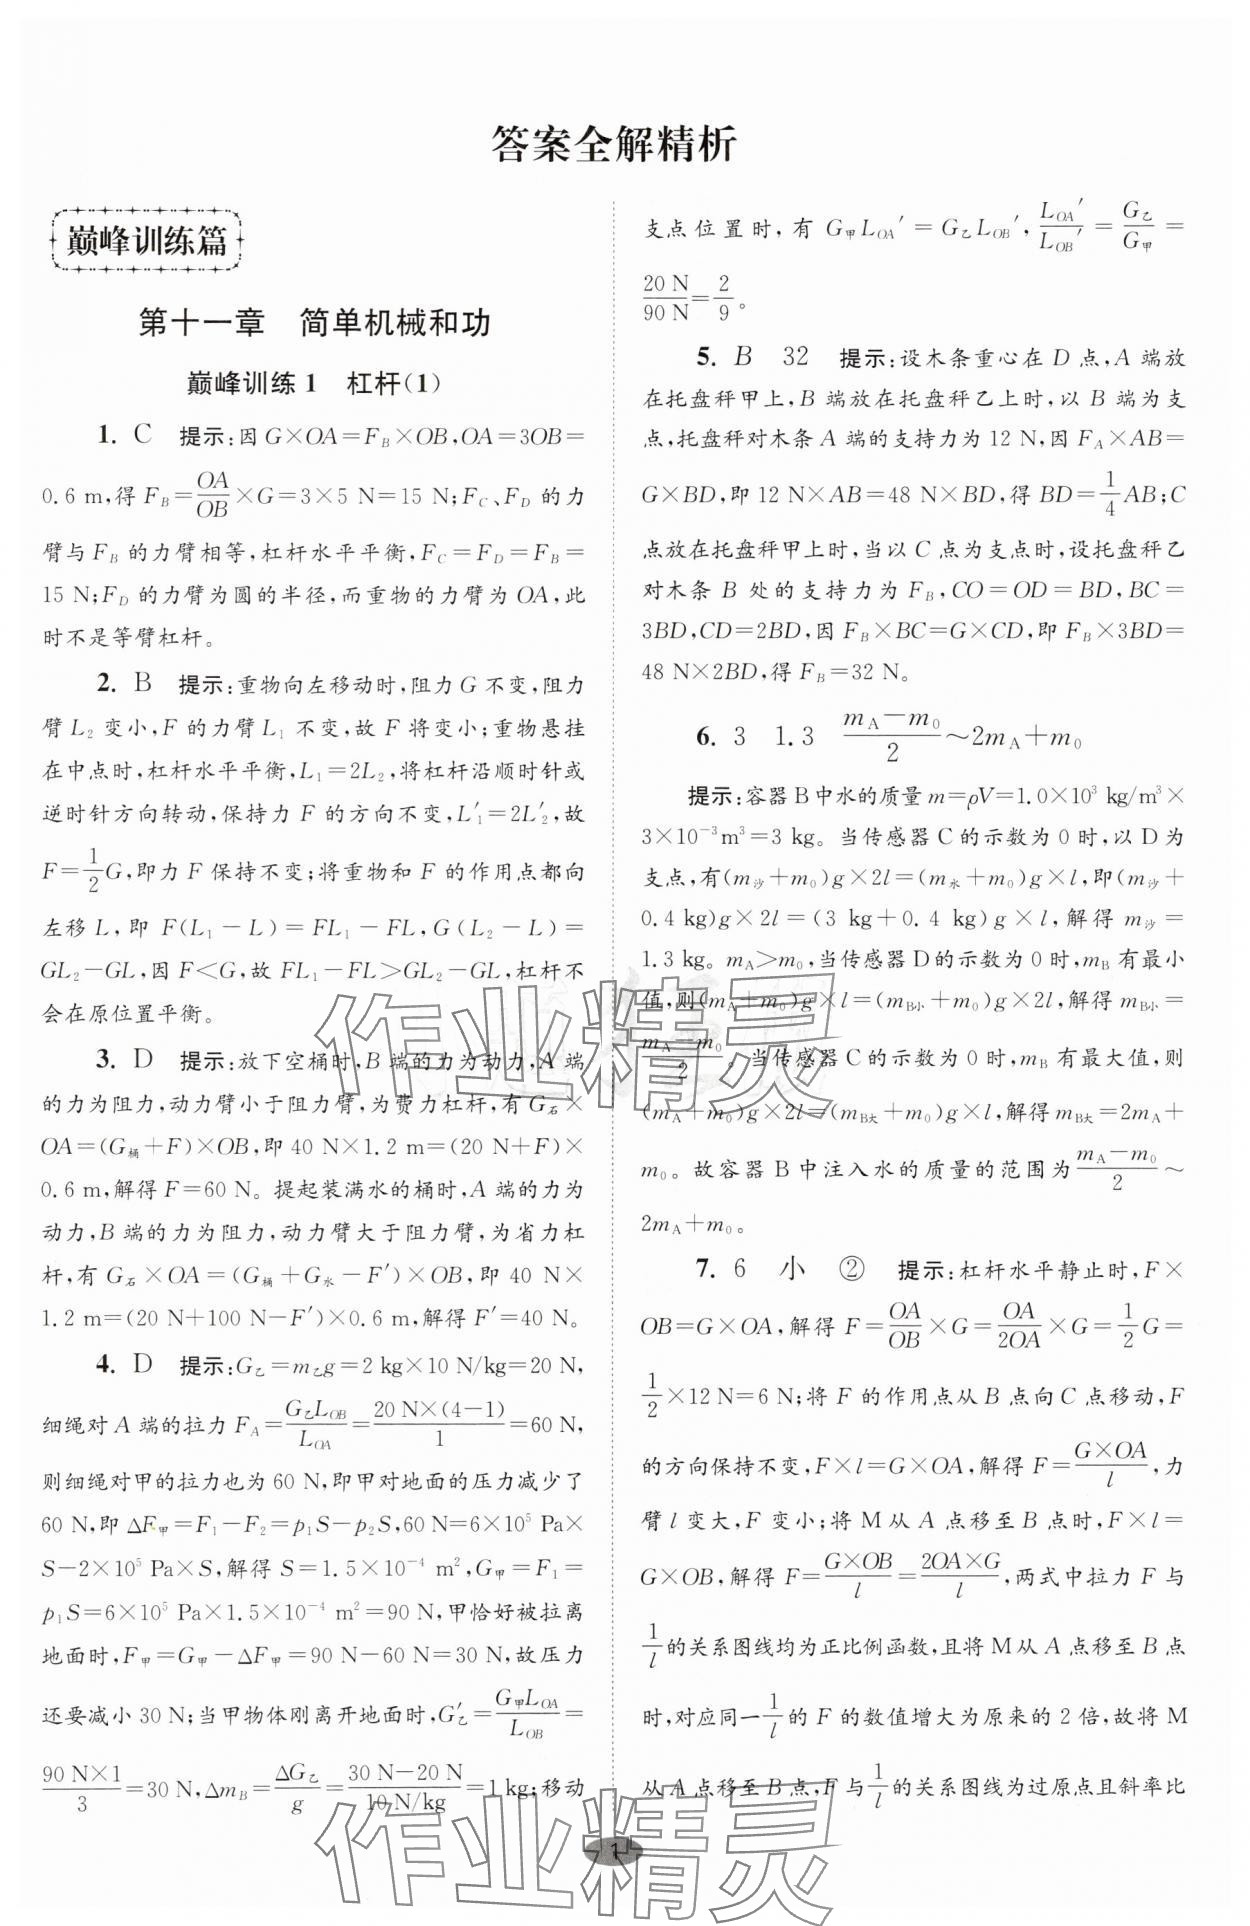 答案全解精析
巅峰训练篇
第十一章　简单机械和功
巅峰训练1　杠杆(1)
1. C　提示:因G×OA=F_B×OB,OA=3OB=
0.6 m,得F_B=OA/OB×G=3×5 N=15 N;F_C、F_D的力
臂与F_B的力臂相等,杠杆水平平衡,F_C=F_D=F_B=
15 N;F_D的力臂为圆的半径,而重物的力臂为OA,此
时不是等臂杠杆。
2. B　提示:重物向左移动时,阻力G不变,阻力
臂L₂变小,F的力臂L₁不变,故F将变小;重物悬挂
在中点时,杠杆水平平衡,L₁=2L₂,将杠杆沿顺时针或
逆时针方向转动,保持力F的方向不变,L₁′=2L₂′,故
F=1/2G,即力F保持不变;将重物和F的作用点都向
左移L,即F(L₁-L)=FL₁-FL,G(L₂-L)=
GL₂-GL,因F<G,故FL₁-FL>GL₂-GL,杠杆不
会在原位置平衡。
3. D　提示:放下空桶时,B端的力为动力,A端
的力为阻力,动力臂小于阻力臂,为费力杠杆,有G石×
OA=(G桶+F)×OB,即40 N×1.2 m=(20 N+F)×
0.6 m,解得F=60 N。提起装满水的桶时,A端的力为
动力,B端的力为阻力,动力臂大于阻力臂,为省力杠
杆,有G石×OA=(G桶+G水-F′)×OB,即40 N×
1.2 m=(20 N+100 N-F′)×0.6 m,解得F′=40 N。
4. D　提示:G乙=m乙g=2 kg×10 N/kg=20 N,
细绳对A端的拉力F_A=G乙L_OB/L_OA=20 N×(4-1)/1=60 N,
则细绳对甲的拉力也为60 N,即甲对地面的压力减少了
60 N,即ΔF甲=F₁-F₂=p₁S-p₂S,60 N=6×10⁵ Pa×
S-2×10⁵ Pa×S,解得S=1.5×10⁻⁴ m²,G甲=F₁=
p₁S=6×10⁵ Pa×1.5×10⁻⁴ m²=90 N,甲恰好被拉离
地面时,F甲=G甲-ΔF甲=90 N-60 N=30 N,故压力
还要减小30 N;当甲物体刚离开地面时,G乙′=G甲L_OA/L_OB=
90 N×1/3=30 N,Δm_B=ΔG乙/g=30 N-20 N/10 N/kg=1 kg;移动
支点位置时,有G甲L_OA′=G乙L_OB′,L_OA′/L_OB′=G乙/G甲=
20 N/90 N=2/9。
5. B　32　提示:设木条重心在D点,A端放
在托盘秤甲上,B端放在托盘秤乙上时,以B端为支
点,托盘秤对木条A端的支持力为12 N,因F_A×AB=
G×BD,即12 N×AB=48 N×BD,得BD=1/4AB;C
点放在托盘秤甲上时,当以C点为支点时,设托盘秤乙
对木条B处的支持力为F_B,CO=OD=BD,BC=
3BD,CD=2BD,因F_B×BC=G×CD,即F_B×3BD=
48 N×2BD,得F_B=32 N。
6. 3　1.3　m_A-m₀/2～2m_A+m₀
提示:容器B中水的质量m=ρV=1.0×10³ kg/m³×
3×10⁻³m³=3 kg。当传感器C的示数为0时,以D为
支点,有(m沙+m₀)g×2l=(m水+m₀)g×l,即(m沙+
0.4 kg)g×2l=(3 kg+0.4 kg)g×l,解得m沙=
1.3 kg。m_A>m₀,当传感器D的示数为0时,m_B有最小
值,则(m_A+m₀)g×l=(m_B小+m₀)g×2l,解得m_B小=
m_A-m₀/2。当传感器C的示数为0时,m_B有最大值,则
(m_A+m₀)g×2l=(m_B大+m₀)g×l,解得m_B大=2m_A+
m₀。故容器B中注入水的质量的范围为m_A-m₀/2～
2m_A+m₀。
7. 6　小　②　提示:杠杆水平静止时,F×
OB=G×OA,解得F=OA/OB×G=OA/2OA×G=1/2G=
1/2×12 N=6 N;将F的作用点从B点向C点移动,F
的方向保持不变,F×l=G×OA,解得F=G×OA/l,力
臂l变大,F变小;将M从A点移至B点时,F×l=
G×OB,解得F=G×OB/l=2OA×G/l,两式中拉力F与
1/l的关系图线均为正比例函数,且将M从A点移至B点
时,对应同一1/l的F的数值增大为原来的2倍,故将M
从A点移至B点,F与1/l的关系图线为过原点且斜率比
1
作业精灵
作业精灵